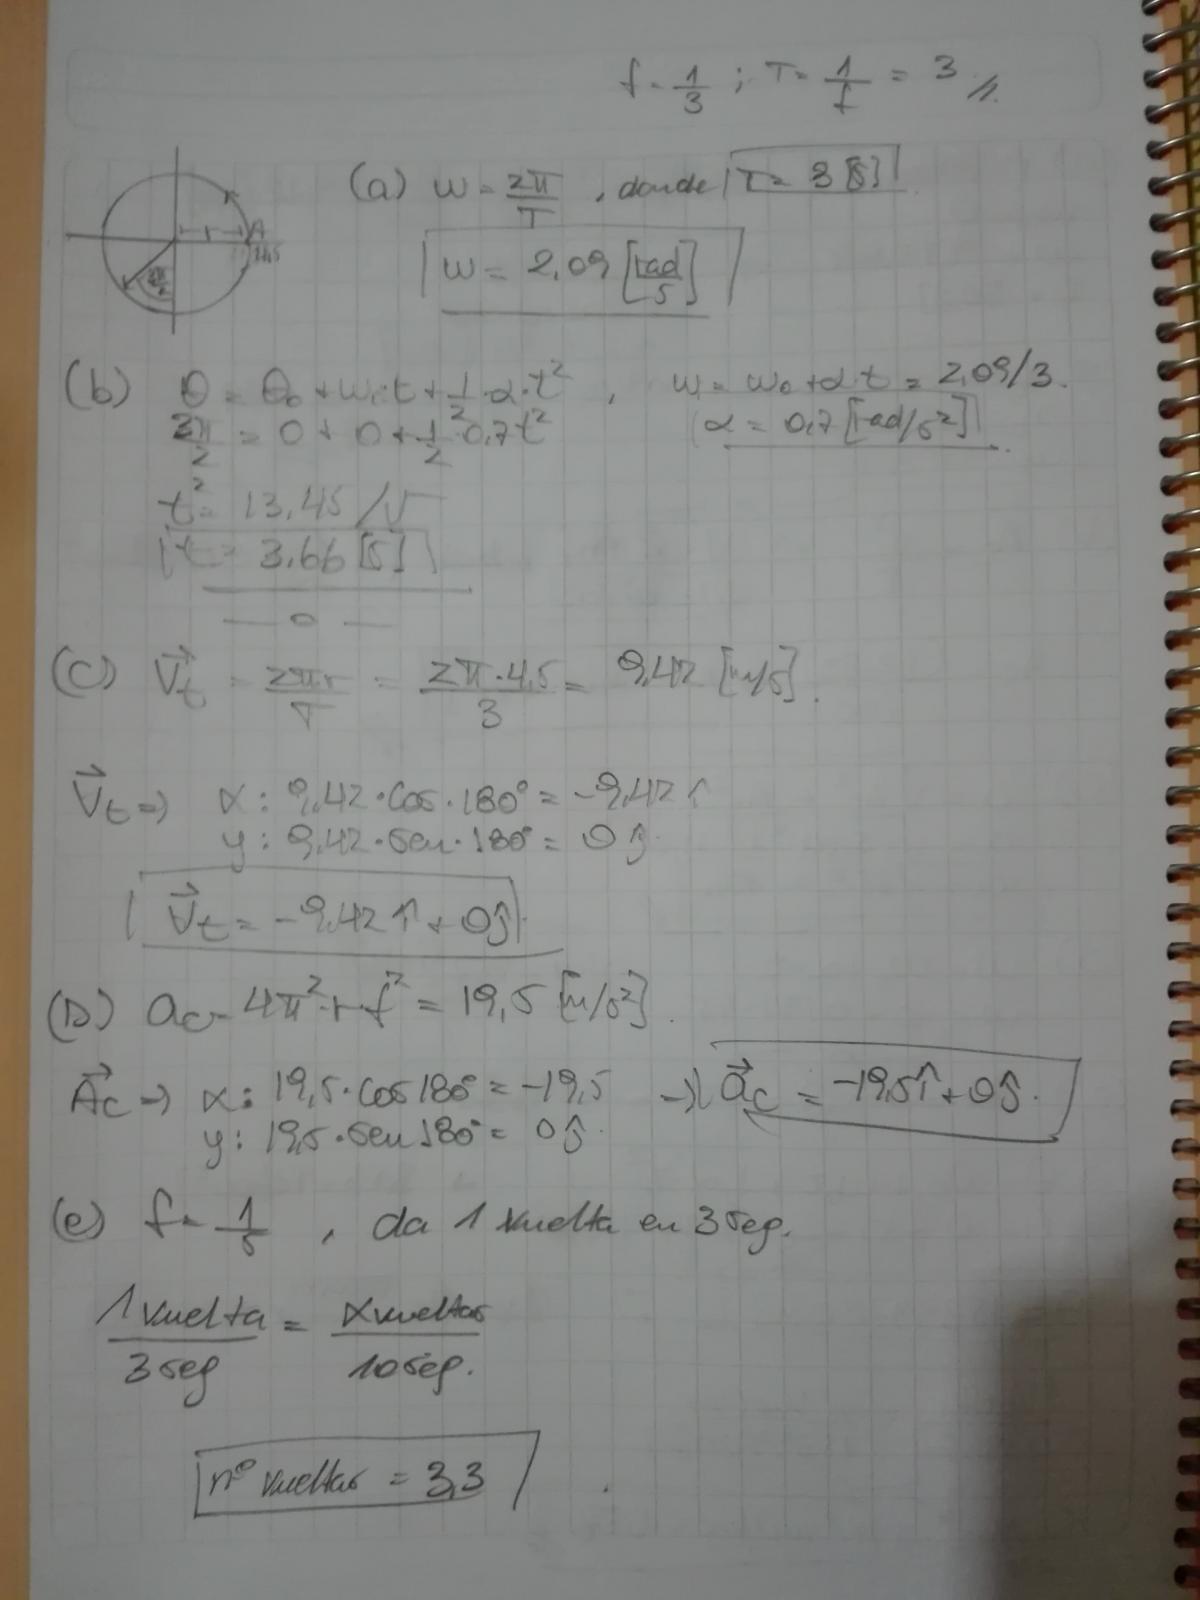 f = 1/3 ; T = 1/f = 3 //.
(a) w = 2π/T , donde T = 3 [s]
r A
4,5
w = 2,09 [rad/s]
(b) θ = θo + wi·t + 1/2·α·t² , w = wo + α·t = 2,09/3.
3π/2 = 0 + 0 + 1/2·0,7t² α = 0,7 [rad/s²]
t² = 13,45 /√
t = 3,66 [s]
— o —
(C) V⃗t = 2πr/T = 2π·4,5/3 = 9,42 [m/s].
V⃗t => x: 9,42·cos·180° = -9,42 î
y: 9,42·sen·180° = 0 ĵ.
V⃗t = -9,42 î + 0ĵ
(D) ac = 4π²·r·f² = 19,5 [m/s²].
A⃗c => x: 19,5·cos180° = -19,5 → a⃗c = -19,5î + 0ĵ.
y: 19,5·sen180° = 0ĵ.
(e) f = 1/s , da 1 vuelta en 3 seg.
1 vuelta/3 seg = x vueltas/10 seg.
nº vueltas = 3,3